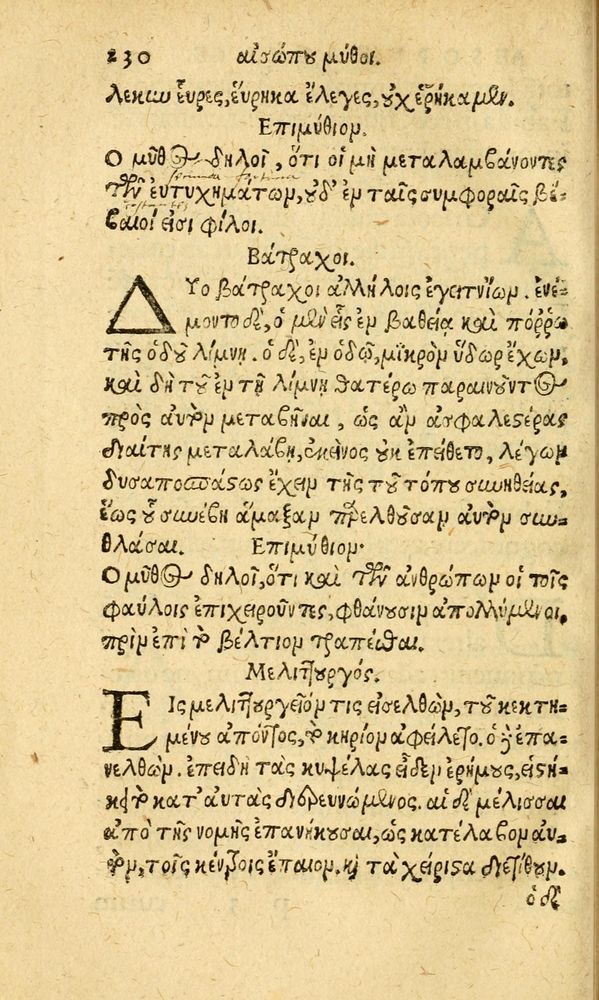 230 αἰσώπου μῦθοι.
λεκυν εὗρες, εὕρηκα ἔλεγες, οὐχ εὑρήκαμεν.
Επιμύθιον.
Ο μῦθος δηλοῖ, ὅτι οἱ μὴ μεταλαμβάνοντες
τῶν εὐτυχημάτων, οὐδ' ἐν ταῖς συμφοραῖς βέ-
βαιοί εἰσι φίλοι.
Βάτραχοι.
ΔΥο βάτραχοι ἀλλήλοις ἐγειτνίων. ἐνέ-
μοντο δὲ, ὁ μὲν εἷς ἐν βαθείᾳ καὶ πόῤῥω
τῆς ὁδοῦ λίμνῃ. ὁ δὲ, ἐν ὁδῷ, μικρὸν ὕδωρ ἔχων,
καὶ δὴ τοῦ ἐν τῇ λίμνῃ θατέρω παραινοῦντος
πρὸς αὐτὸν μεταβῆναι, ὡς ἂν ἀσφαλεστέρας
διαίτης μεταλάβῃ, ἐκεῖνος οὐκ ἐπείθετο, λέγων
δυσαποσπάστως ἔχειν τῆς τοῦ τόπου συνηθείας,
ἕως οὗ συνέβη ἅμαξαν παρελθοῦσαν αὐτὸν συν-
θλάσαι. Επιμύθιον.
Ο μῦθος δηλοῖ, ὅτι καὶ τῶν ἀνθρώπων οἱ τοῖς
φαύλοις ἐπιχειροῦντες, φθάνουσιν ἀπολλύμενοι,
πρὶν ἐπὶ τὸ βέλτιον τραπέσθαι.
Μελιττουργός.
ΕΙς μελιττουργεῖόν τις εἰσελθὼν, τοῦ κεκτη-
μένου ἀπόντος, τὸ κηρίον ἀφείλετο. ὁ δὲ ἐπα-
νελθὼν. ἐπειδὴ τὰς κυψέλας εἶδεν ἐρήμους, εἱστή-
κει τὸ κατ' αὐτὰς διερευνώμενος. αἱ δὲ μέλισσαι
ἀπὸ τῆς νομῆς ἐπανήκουσαι, ὡς κατέλαβον αὐ-
τὸν, τοῖς κέντροις ἔπαιον. καὶ τὰ χείριστα διετίθουν.
ὁ δὲ